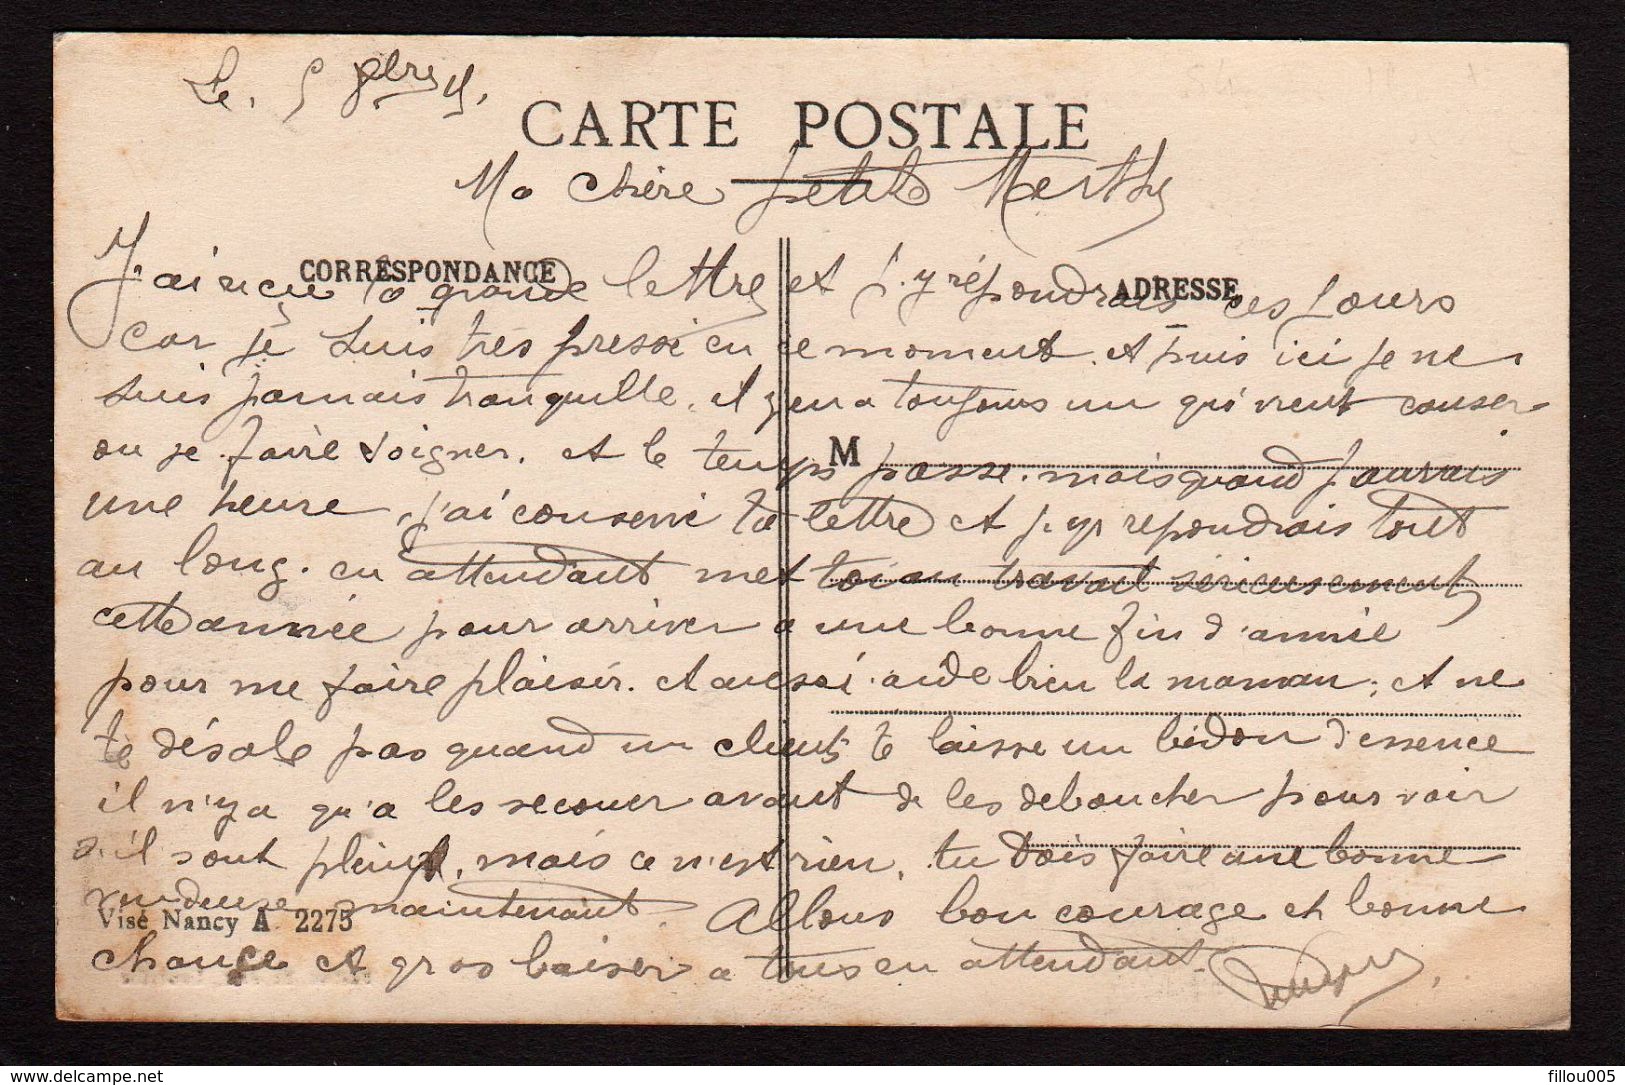 Le. 5 9bre
CARTE POSTALE
Ma chère petite Marthe
CORRESPONDANCE
ADRESSE
J'ai reçu ta grande lettre et j'y répondrais ces jours
car je suis très pressé en ce moment. et puis ici je ne
suis jamais tranquille. il y en a toujours un qui vient causer
ou se faire soigner. et le temps passe. mais quand j'aurais
M
une heure, j'ai conservé ta lettre et j'y repondrais tout
au long. en attendant met toi au travail sérieusement
cette année pour arriver a une bonne fin d'année
pour me faire plaisir. et aussi aide bien la maman; et ne
te désole pas quand un client te laisse un bidon d'essence
il n'y a qu'a les secouer avant de les deboucher pour voir
s'il sont plein, mais ce n'est rien. tu dois faire une bonne
vendeuse maintenant. Allons bon courage et bonne
Visé Nancy A 2275
chance et gros baiser a tous en attendant.
delcampe.net
fillou005